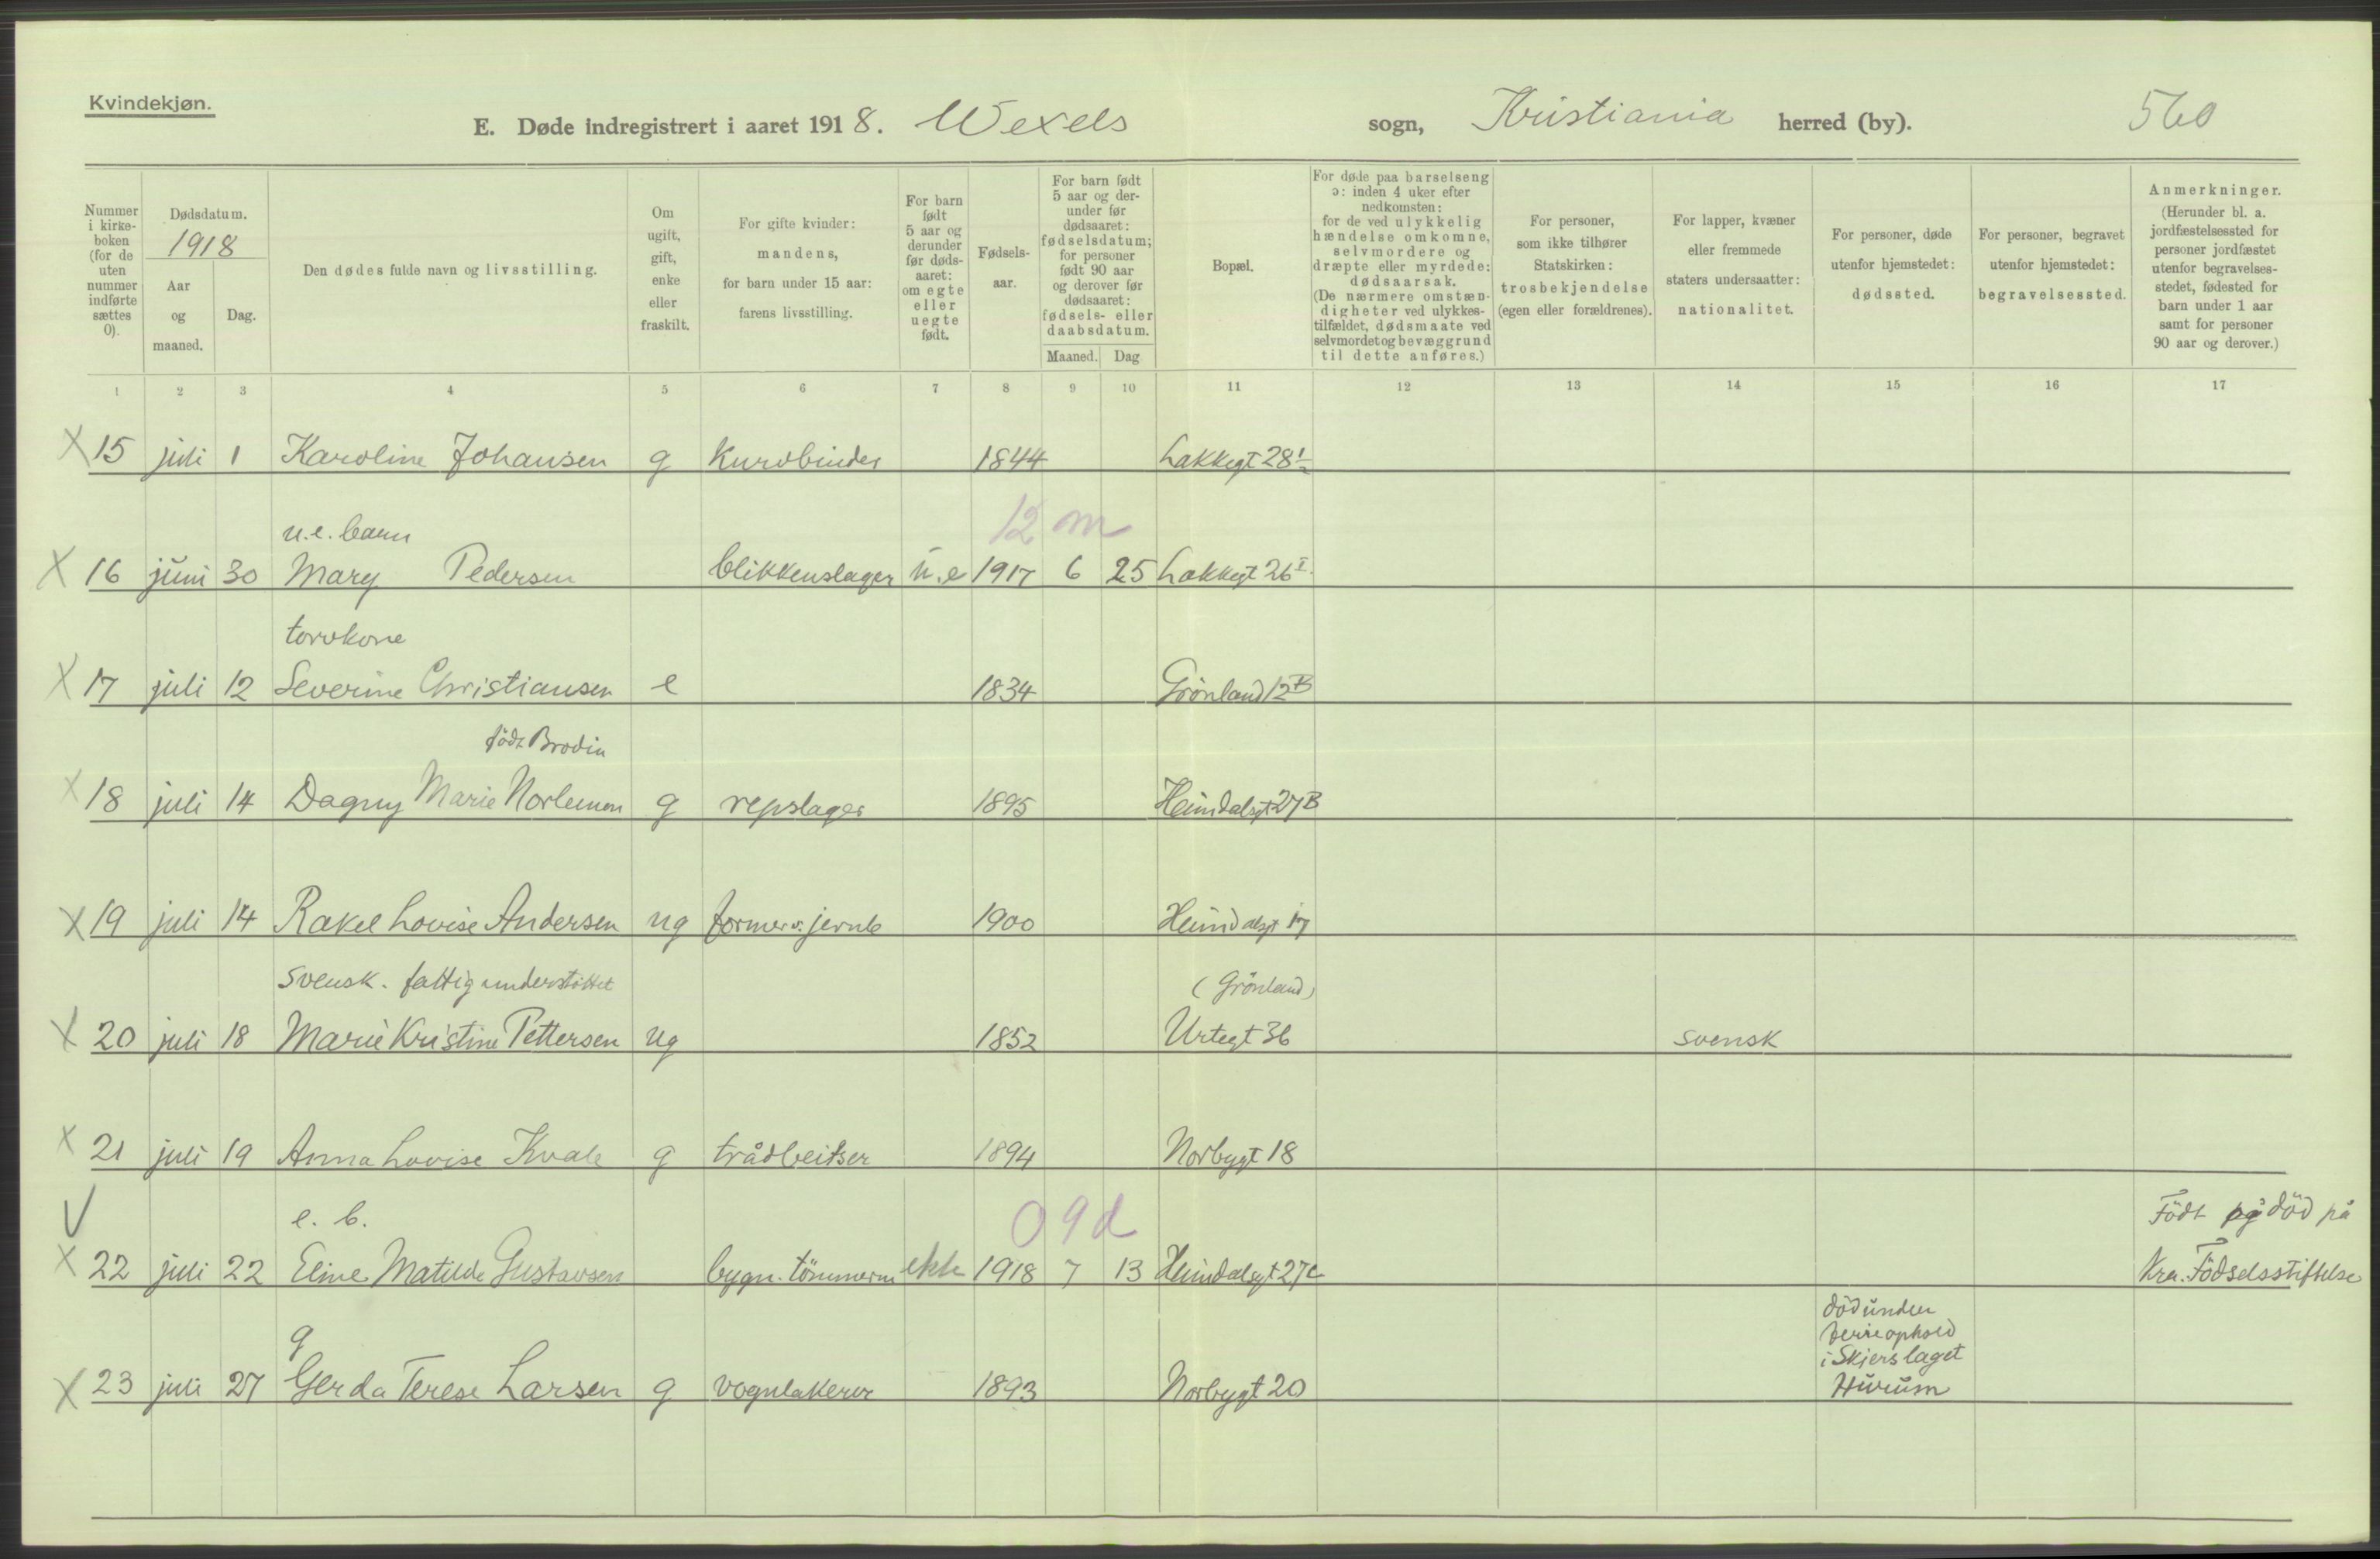 Kvindekjøn.
E. Døde indregistrert i aaret 1918. Wexels sogn, Kristiania herred (by). 560
Nummer i kirke-boken (for de uten nummer indførte sættes 0).
Dødsdatum.
1918
Aar og maaned.
Dag.
Den dødes fulde navn og livsstilling.
Om ugift, gift, enke eller fraskilt.
For gifte kvinder: mandens, for barn under 15 aar: farens livsstilling.
For barn født 5 aar og derunder før døds-aaret: om egte eller uegte født.
Fødsels-aar.
For barn født 5 aar og der-under før dødsaaret: fødselsdatum; for personer født 90 aar og derover før dødsaaret: fødsels- eller daabsdatum.
Maaned. Dag
Bopæl.
For døde paa barselseng ɔ: inden 4 uker efter nedkomsten; for de ved ulykkelig hændelse omkomne, selvmordere og dræpte eller myrdede: dødsaarsak. (De nærmere omstæn-digheter ved ulykkes-tilfældet, dødsmaate ved selvmordet og bevæggrund til dette anføres.)
For personer, som ikke tilhører Statskirken: trosbekjendelse (egen eller forældrenes).
For lapper, kvæner eller fremmede staters undersaatter: nationalitet.
For personer, døde utenfor hjemstedet: dødssted.
For personer, begravet utenfor hjemstedet: begravelsessted.
Anmerkninger. (Herunder bl. a. jordfæstelsessted for personer jordfæstet utenfor begravelses-stedet, fødested for barn under 1 aar samt for personer 90 aar og derover.)
1 2 3 4 5 6 7 8 9 10 11 12 13 14 15 16 17
X 15 juli 1 Karoline Johansen g Kurvbinder 1844 Lakkegt 28 1/2
u.e. barn 12 m
X 16 juni 30 Mary Pedersen blikkenslager u.e 1917 6 25 Lakkegt 26 I.
torvkone
X 17 juli 12 Severine Christiansen e 1834 Grönland 12 B
födt Brodin
X 18 juli 14 Dagny Marie g repslager 1895 Heimdalsgt 27 B
X 19 juli 14 Rakel Lovise Andersen ug former v. jernb 1900 Heimdalsgt 17
svensk. fattigunderstöttet (Grönland)
X 20 juli 18 Marie Kristine Pettersen ug 1852 Urtegt 36 svensk
X 21 juli 19 Anna Lovise Kvale g trådbeitser 1894 Norbygt 18
V e. b. 09d Födt og död på
X 22 juli 22 Eline Matilde Gustavsen bygn. tömmerm ekte 1918 7 13 Heimdalsgt 27c Kra. Födselsstiftelse
död under
ferieophold
i Skjerslaget
g
X 23 juli 27 Gerda Terese Larsen g vognlakerer 1893 Norbygt 20 Hurum